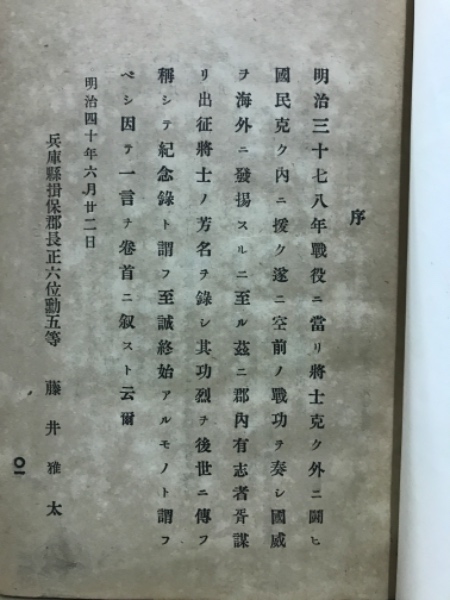 序
明治三十七八年戰役ニ當リ將士克ク外ニ鬪ヒ
國民克ク內ニ援ク遂ニ空前ノ戰功ヲ奏シ國威
ヲ海外ニ發揚スルニ至ル茲ニ郡內有志者胥謀
リ出征將士ノ芳名ヲ錄シ其功烈ヲ後世ニ傳フ
稱シテ紀念錄ト謂フ至誠終始アルモノト謂フ
ベシ因テ一言ヲ卷首ニ叙スト云爾
明治四十年六月廿二日
兵庫縣揖保郡長正六位勳五等 藤井雅太